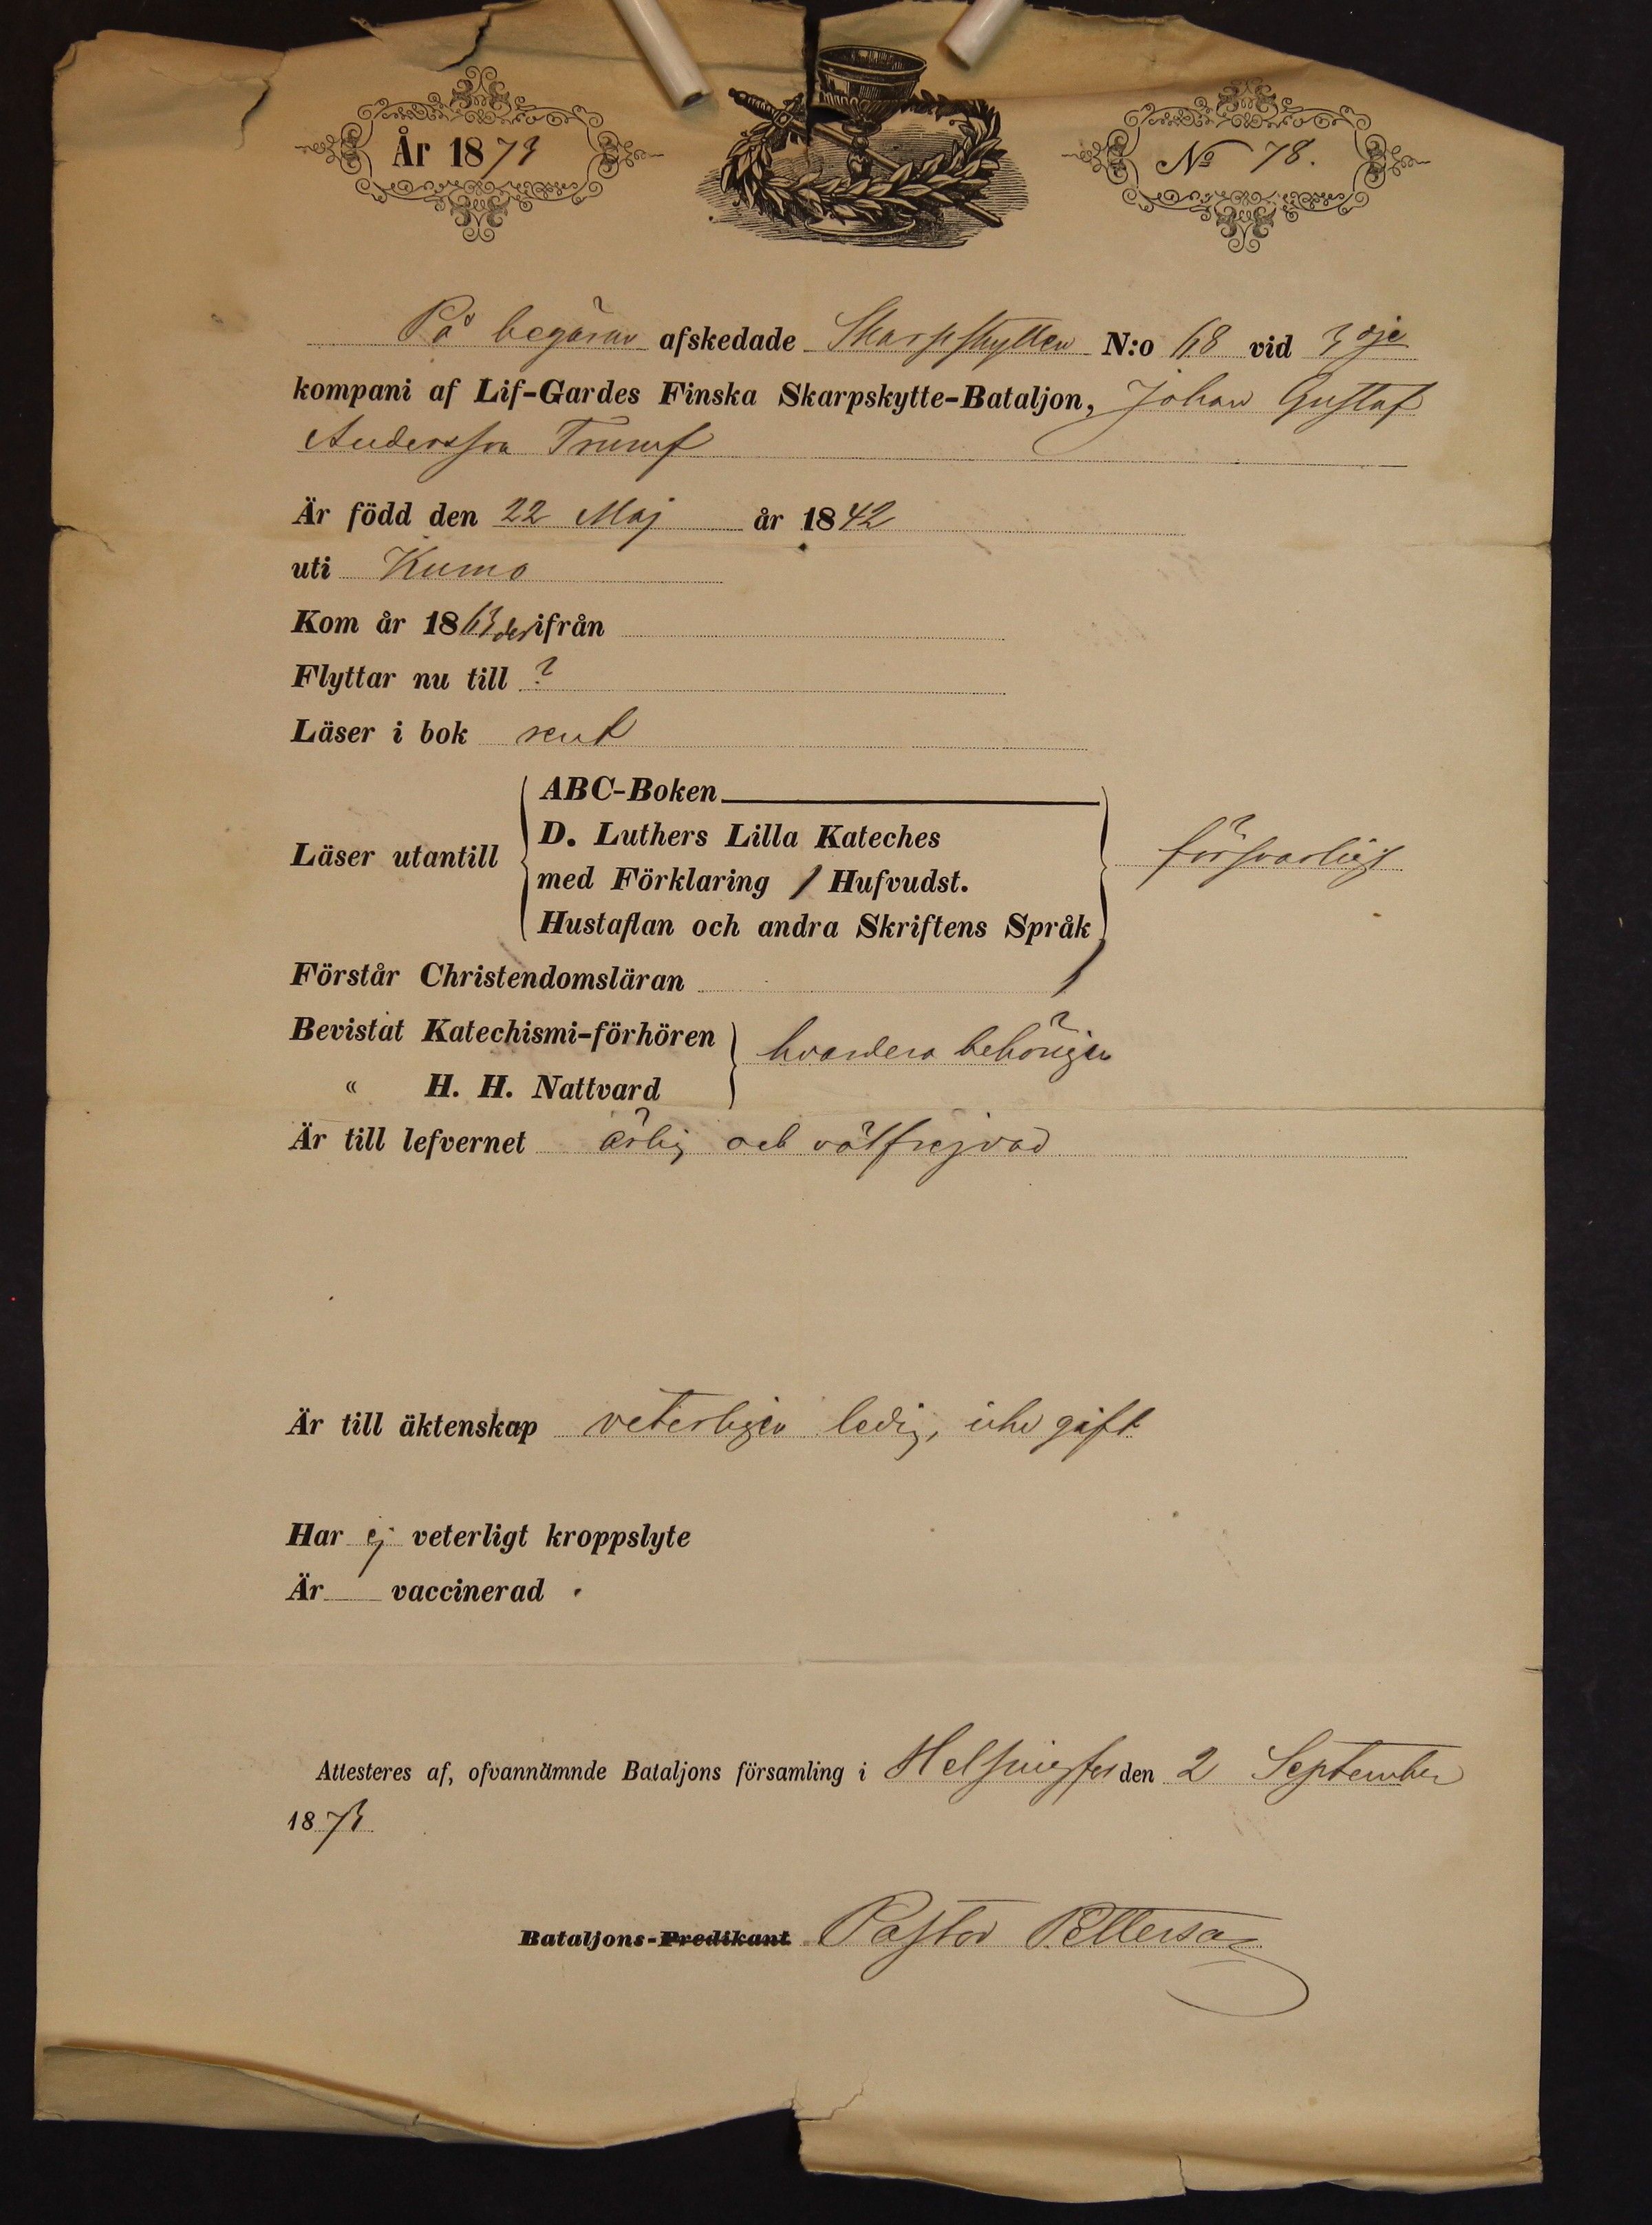 År 1873
No 78.
På begäran afskedade Skarpskytten N:o 68 vid 3dje
kompani af Lif-Gardes Finska Skarpskytte-Bataljon, Johan Gustaf
Andersson Trumf
Är född den 22 Maj år 1842
uti Kumo
Kom år 1863 derifrån
Flyttar nu till ?
Läser i bok rent
Läser utantill
ABC-Boken
D. Luthers Lilla Kateches
med Förklaring / Hufvudst.
Hustaflan och andra Skriftens Språk
försvarligt
Förstår Christendomsläran
Bevistat Katechismi-förhören
" H. H. Nattvard
hvardera behörigen
Är till lefvernet ärlig och välfrejdad
Är till äktenskap veterligen ledig, icke gift
Har ej veterligt kroppslyte
Är vaccinerad
Attesteres af, ofvannämnde Bataljons församling i Helsingfors den 2 September
1873
Bataljons-Predikant Pastor Petterson